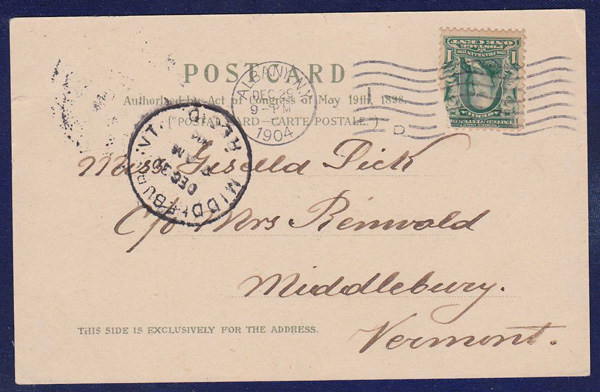 POSTCARD
Authorized by Act of Congress of May 19th, 1898.
("POSTAL CARD — CARTE POSTALE.")
ALBANY, N.Y.
DEC 29
9 - PM
1904
D
POSTAGE
ONE CENT
1 1
MIDDLEBURY, VT.
REC'D.
DEC 30
AM
Miss Gisella Pick
C/o Mrs Reinwald
Middlebury.
Vermont.
THIS SIDE IS EXCLUSIVELY FOR THE ADDRESS.